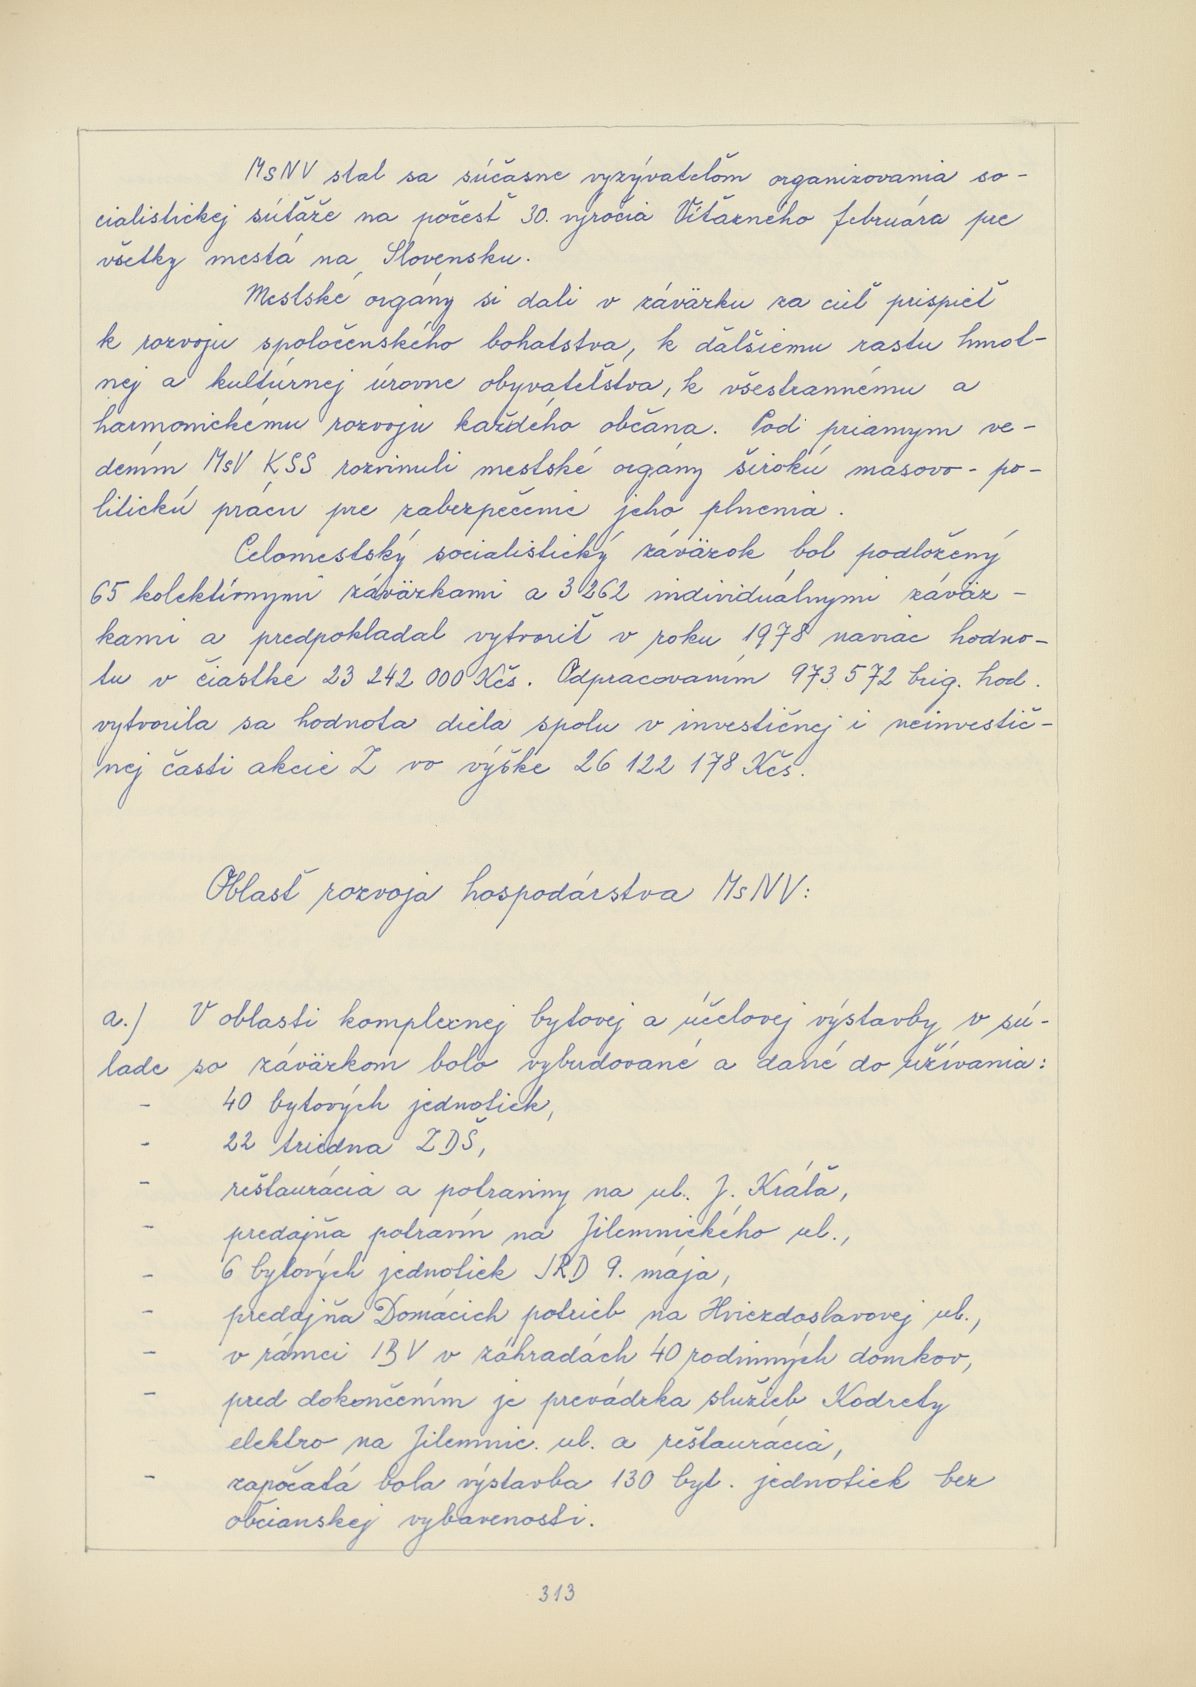 MsNV stal sa súčasne vyzývateľom organizovania so-
cialistickej súťaže na počesť 30. výročia Víťazného februára pre
všetky mestá na Slovensku.
Mestské orgány si dali v záväzku za cieľ prispieť
k rozvoju spoločenského bohatstva, k ďalšiemu rastu hmot-
nej a kultúrnej úrovne obyvateľstva, k všestrannému a
harmonickému rozvoju každého občana. Pod priamym ve-
dením MsV KSS rozvinuli mestské orgány širokú masovo-po-
litickú prácu pre zabezpečenie jeho plnenia.
Celomestský socialistický záväzok bol podložený
65 kolektívnymi záväzkami a 3 262 individuálnymi záväz-
kami a predpokladal vytvoriť v roku 1978 naviac hodno-
tu v čiastke 23 242 000 Kčs. Odpracovaním 973 572 brig. hod.
vytvorila sa hodnota diela spolu v investičnej i neinvestič-
nej časti akcie Z vo výške 26 122 178 Kčs.
Oblasť rozvoja hospodárstva MsNV:
a.) V oblasti komplexnej bytovej a účelovej výstavby v sú-
lade so záväzkom bolo vybudované a dané do užívania:
- 40 bytových jednotiek,
- 22 triedna ZDŠ,
- reštaurácia a potraviny na ul. J. Kráľa,
- predajňa potravín na Jilemnického ul.,
- 6 bytových jednotiek JRD 9. mája,
- predajňa Domácich potrieb na Hviezdoslavovej ul.,
- v rámci IBV v záhradách 40 rodinných domkov,
- pred dokončením je prevádzka služieb Kodrety
elektro na Jilemnic. ul. a reštaurácia,
- započatá bola výstavba 130 byt. jednotiek bez
občianskej vybavenosti.
313